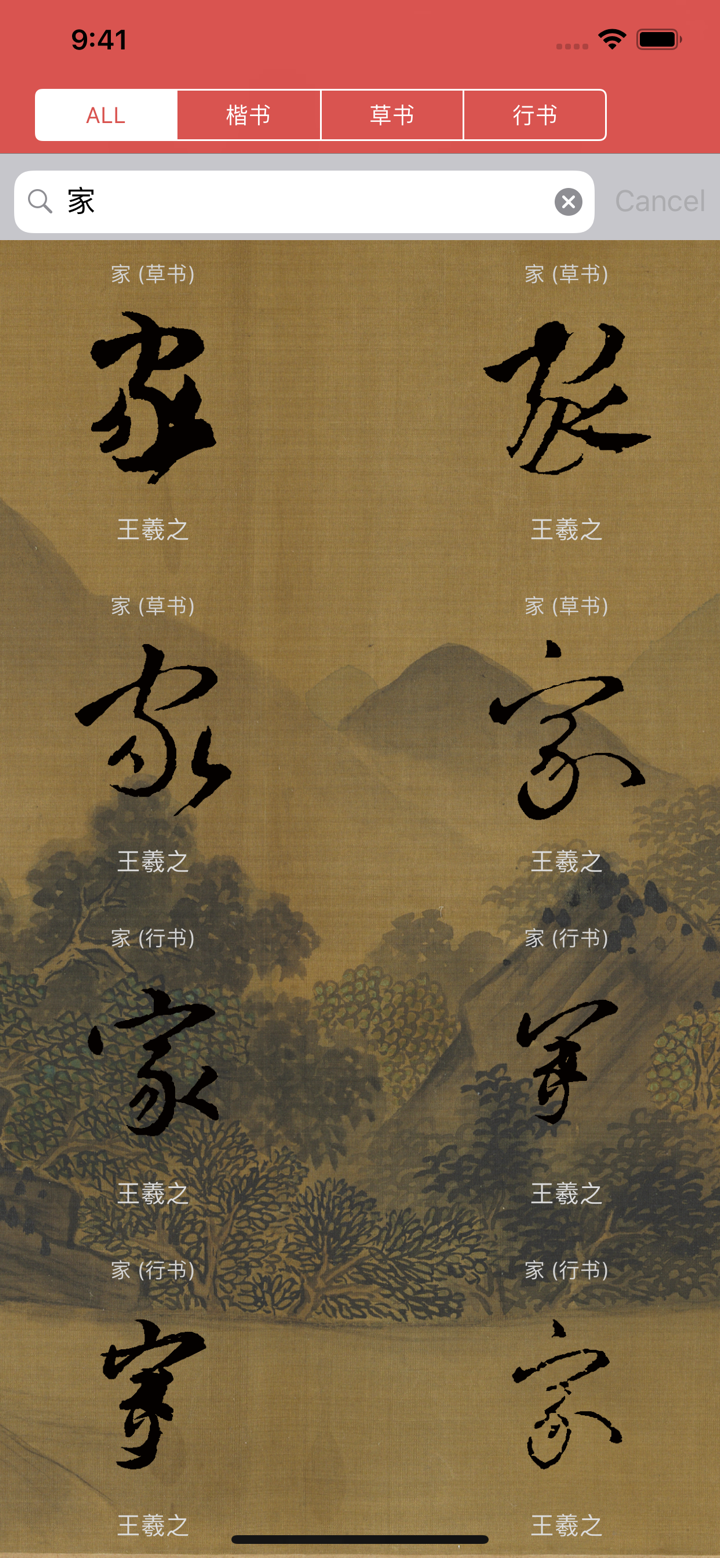 9:41
ALL 楷书 草书 行书
家 Cancel
家 (草书) 家 (草书)
家 家
王羲之 王羲之
家 (草书) 家 (草书)
家 家
王羲之 王羲之
家 (行书) 家 (行书)
家 家
王羲之 王羲之
家 (行书) 家 (行书)
家 家
王羲之 王羲之